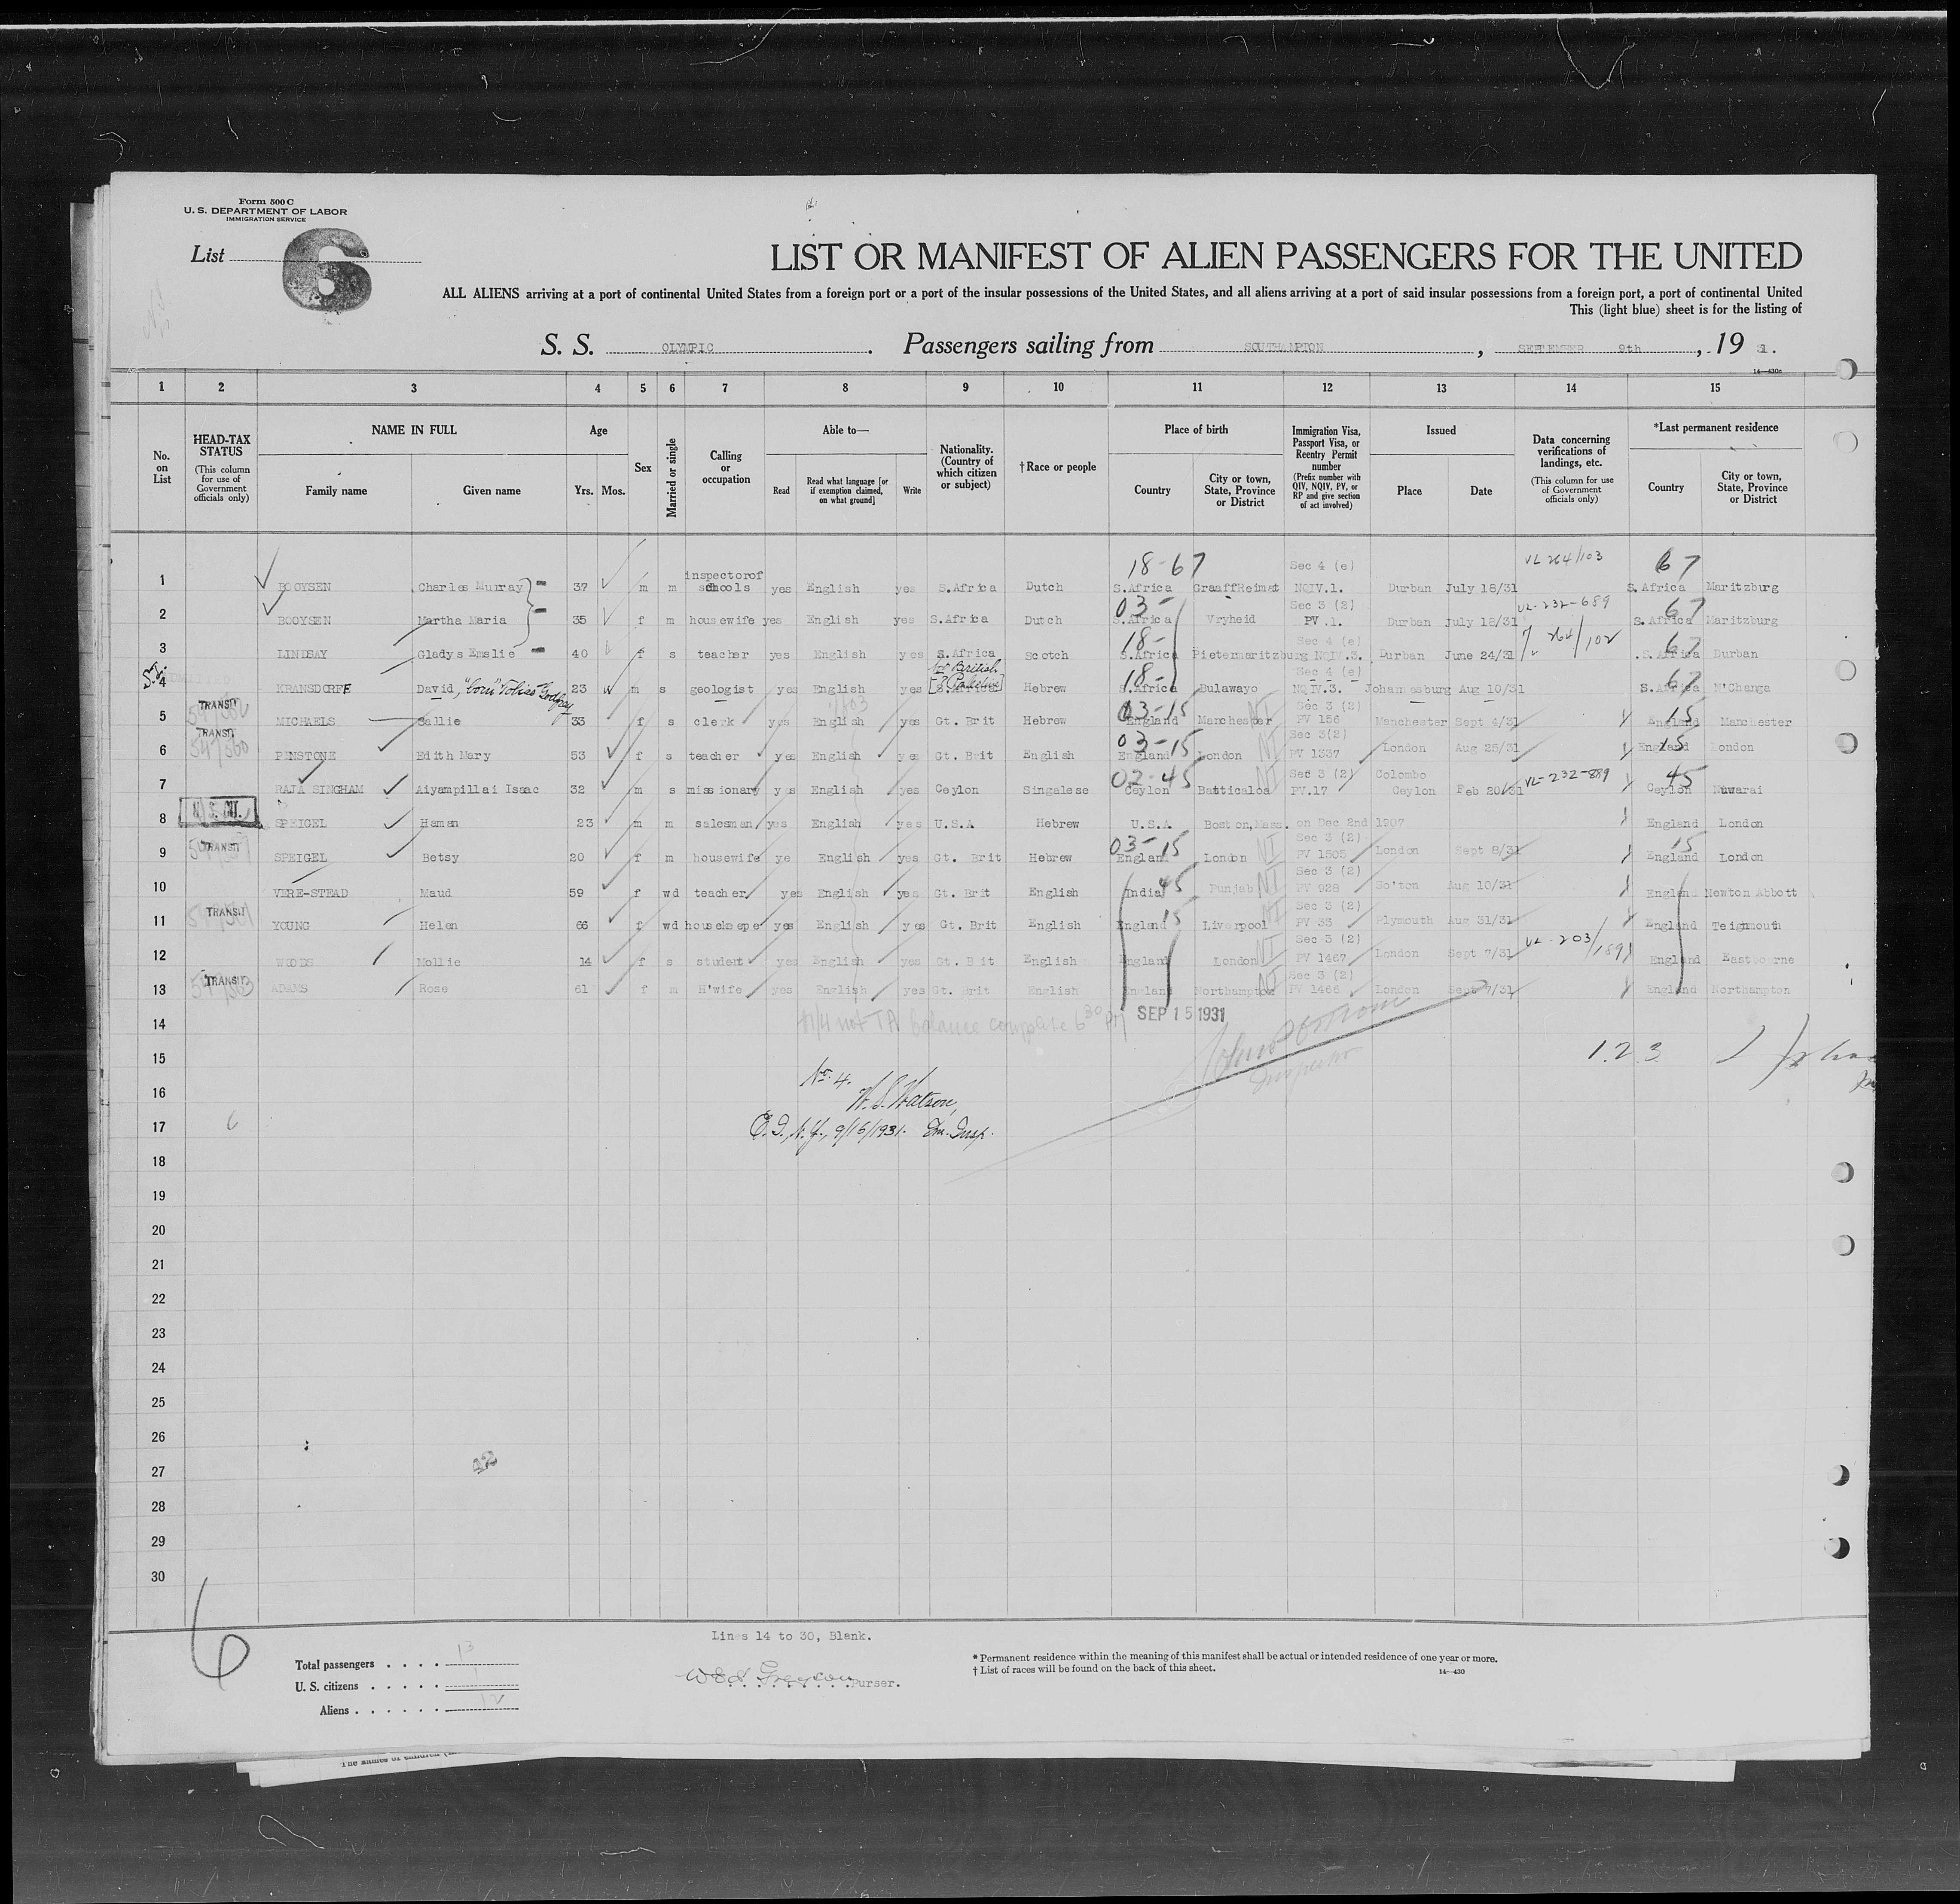 Form 500 C
U. S. DEPARTMENT OF LABOR
IMMIGRATION SERVICE
List 6
LIST OR MANIFEST OF ALIEN PASSENGERS FOR THE UNITED
ALL ALIENS arriving at a port of continental United States from a foreign port or a port of the insular possessions of the United States, and all aliens arriving at a port of said insular possessions from a foreign port, a port of continental United
This (light blue) sheet is for the listing of
S. S. OLYMPIC. Passengers sailing from SOUTHAMPTON, SEPTEMBER 9th, 19 31.
14—430c
1 2 3 4 5 6 7 8 9 10 11 12 13 14 15
No. on List
HEAD-TAX STATUS (This column for use of Government officials only)
NAME IN FULL Family name Given name
Age Yrs. Mos.
Sex
Married or single
Calling or occupation
Able to— Read Read what language [or if exemption claimed, on what ground] Write
Nationality. (Country of which citizen or subject)
† Race or people
Place of birth Country City or town, State, Province or District
Immigration Visa, Passport Visa, or Reentry Permit number (Prefix number with QIV, NQIV, PV, or RP and give section of act involved)
Issued Place Date
Data concerning verifications of landings, etc. (This column for use of Government officials only)
*Last permanent residence Country City or town, State, Province or District
18-67 Sec 4 (e) VL 264/103 67
1 BOOYSEN Charles Murray 37 m m inspectorof schools yes English yes S.Africa Dutch S.Africa GraaffReimet NQIV.1. Durban July 18/31 S. Africa Maritzburg
03- Sec 3 (2) VL-232-689 67
2 BOOYSEN Martha Maria 35 f m housewife yes English yes S.Africa Dutch S.Africa Vryheid PV .1. Durban July 18/31 S. Africa Maritzburg
18- Sec 4 (e) 264/102 67
3 LINDSAY Gladys Emslie 40 f s teacher yes English yes S.Africa Scotch S.Africa Pietermaritzburg NQIV.3. Durban June 24/31 S. Africa Durban
British Palestine 18- Sec 4 (e) 67
4 KRANSDORFF David, "born" Tobias Godfrey 23 m s geologist yes English yes S.Africa Hebrew S.Africa Bulawayo NQIV.3. Johannesburg Aug 10/31 S. Africa N'Changa
TRANSIT 03-15 Sec 3 (2) 15
5 MICHAELS Sallie 33 f s clerk yes English yes Gt. Brit Hebrew England Manchester PV 156 Manchester Sept 4/31 England Manchester
TRANSIT 03-15 Sec 3(2) 15
6 PENSTONE Edith Mary 53 f s teacher yes English yes Gt. Brit English England London PV 1337 London Aug 25/31 England London
02-45 Sec 3 (2) Colombo VL-232-889 45
7 RAJA SINGHAM Aiyampillai Isaac 32 m s missionary yes English yes Ceylon Singalese Ceylon Batticaloa PV.17 Ceylon Feb 20/31 Ceylon Nuwarai
U.S. CIT.
8 SPEIGEL Heman 23 m m salesman yes English yes U.S.A Hebrew U.S.A Boston,Mass. on Dec 2nd 1907 England London
TRANSIT 03-15 Sec 3 (2) 15
9 SPEIGEL Betsy 20 f m housewife ye English yes Gt. Brit Hebrew England London PV 1505 London Sept 8/31 England London
45 Sec 3 (2)
10 VERE-STEAD Maud 59 f wd teacher yes English yes Gt. Brit English India Punjab PV 928 So'ton Aug 10/31 England Newton Abbott
TRANSIT 15 Sec 3 (2)
11 YOUNG Helen 66 f wd housekeepe yes English yes Gt. Brit English England Liverpool PV 33 Plymouth Aug 31/31 England Teignmouth
Sec 3 (2) VL-203/1891
12 WOODS Mollie 14 f s student yes English yes Gt. Brit English England London PV 1467 London Sept 7/31 England Eastbourne
TRANSIT Sec 3 (2)
13 ADAMS Rose 61 f m H'wife yes English yes Gt. Brit English England Northampton PV 1466 London Sept 7/31 England Northampton
14 balance complete 6 30 PM SEP 15 1931
Inspector
15 1.2.3
No. 4.
16 W. S. Watson,
17 E. I., N.Y., 9/16/1931. Im. Insp.
18
19
20
21
22
23
24
25
26
27
28
29
30
6
Lines 14 to 30, Blank.
Total passengers . . . . 13
U. S. citizens . . . . . 1
Aliens . . . . . . 12
Purser.
* Permanent residence within the meaning of this manifest shall be actual or intended residence of one year or more.
† List of races will be found on the back of this sheet.
14—430